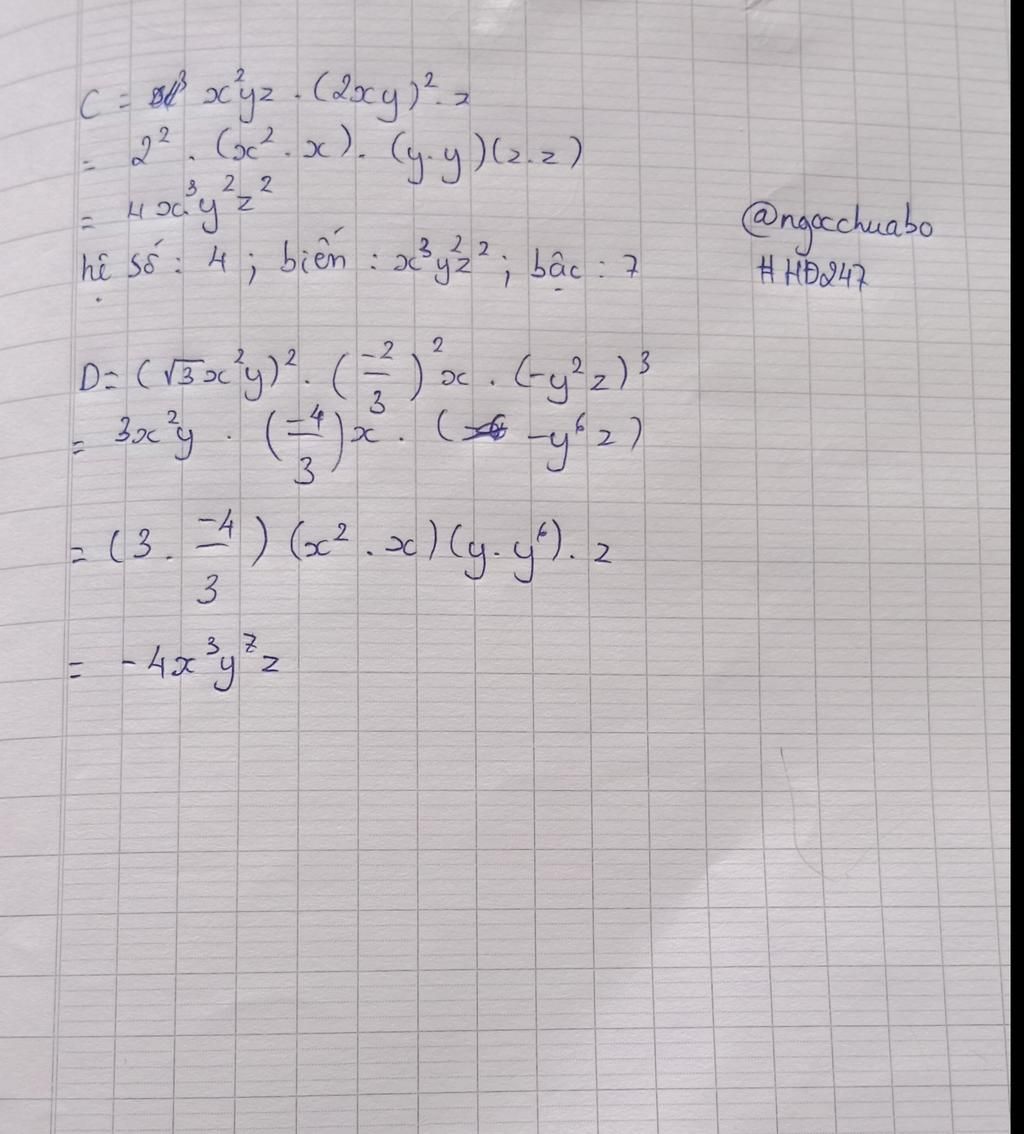 C = x²yz . (2xy)² . z
= 2² . (x² . x) . (y . y)(z . z)
= 4x³y²z²
hệ số : 4 ; biến : x³y²z² ; bậc : 7
@ngocchuabo
# HĐ247
D = (√3x²y)² . (-2/3)²x . (-y²z)³
= 3x²y . (-4/3)x . (-y⁶z)
= (3 . -4/3) (x² . x)(y . y⁶) . z
= -4x³y⁷z